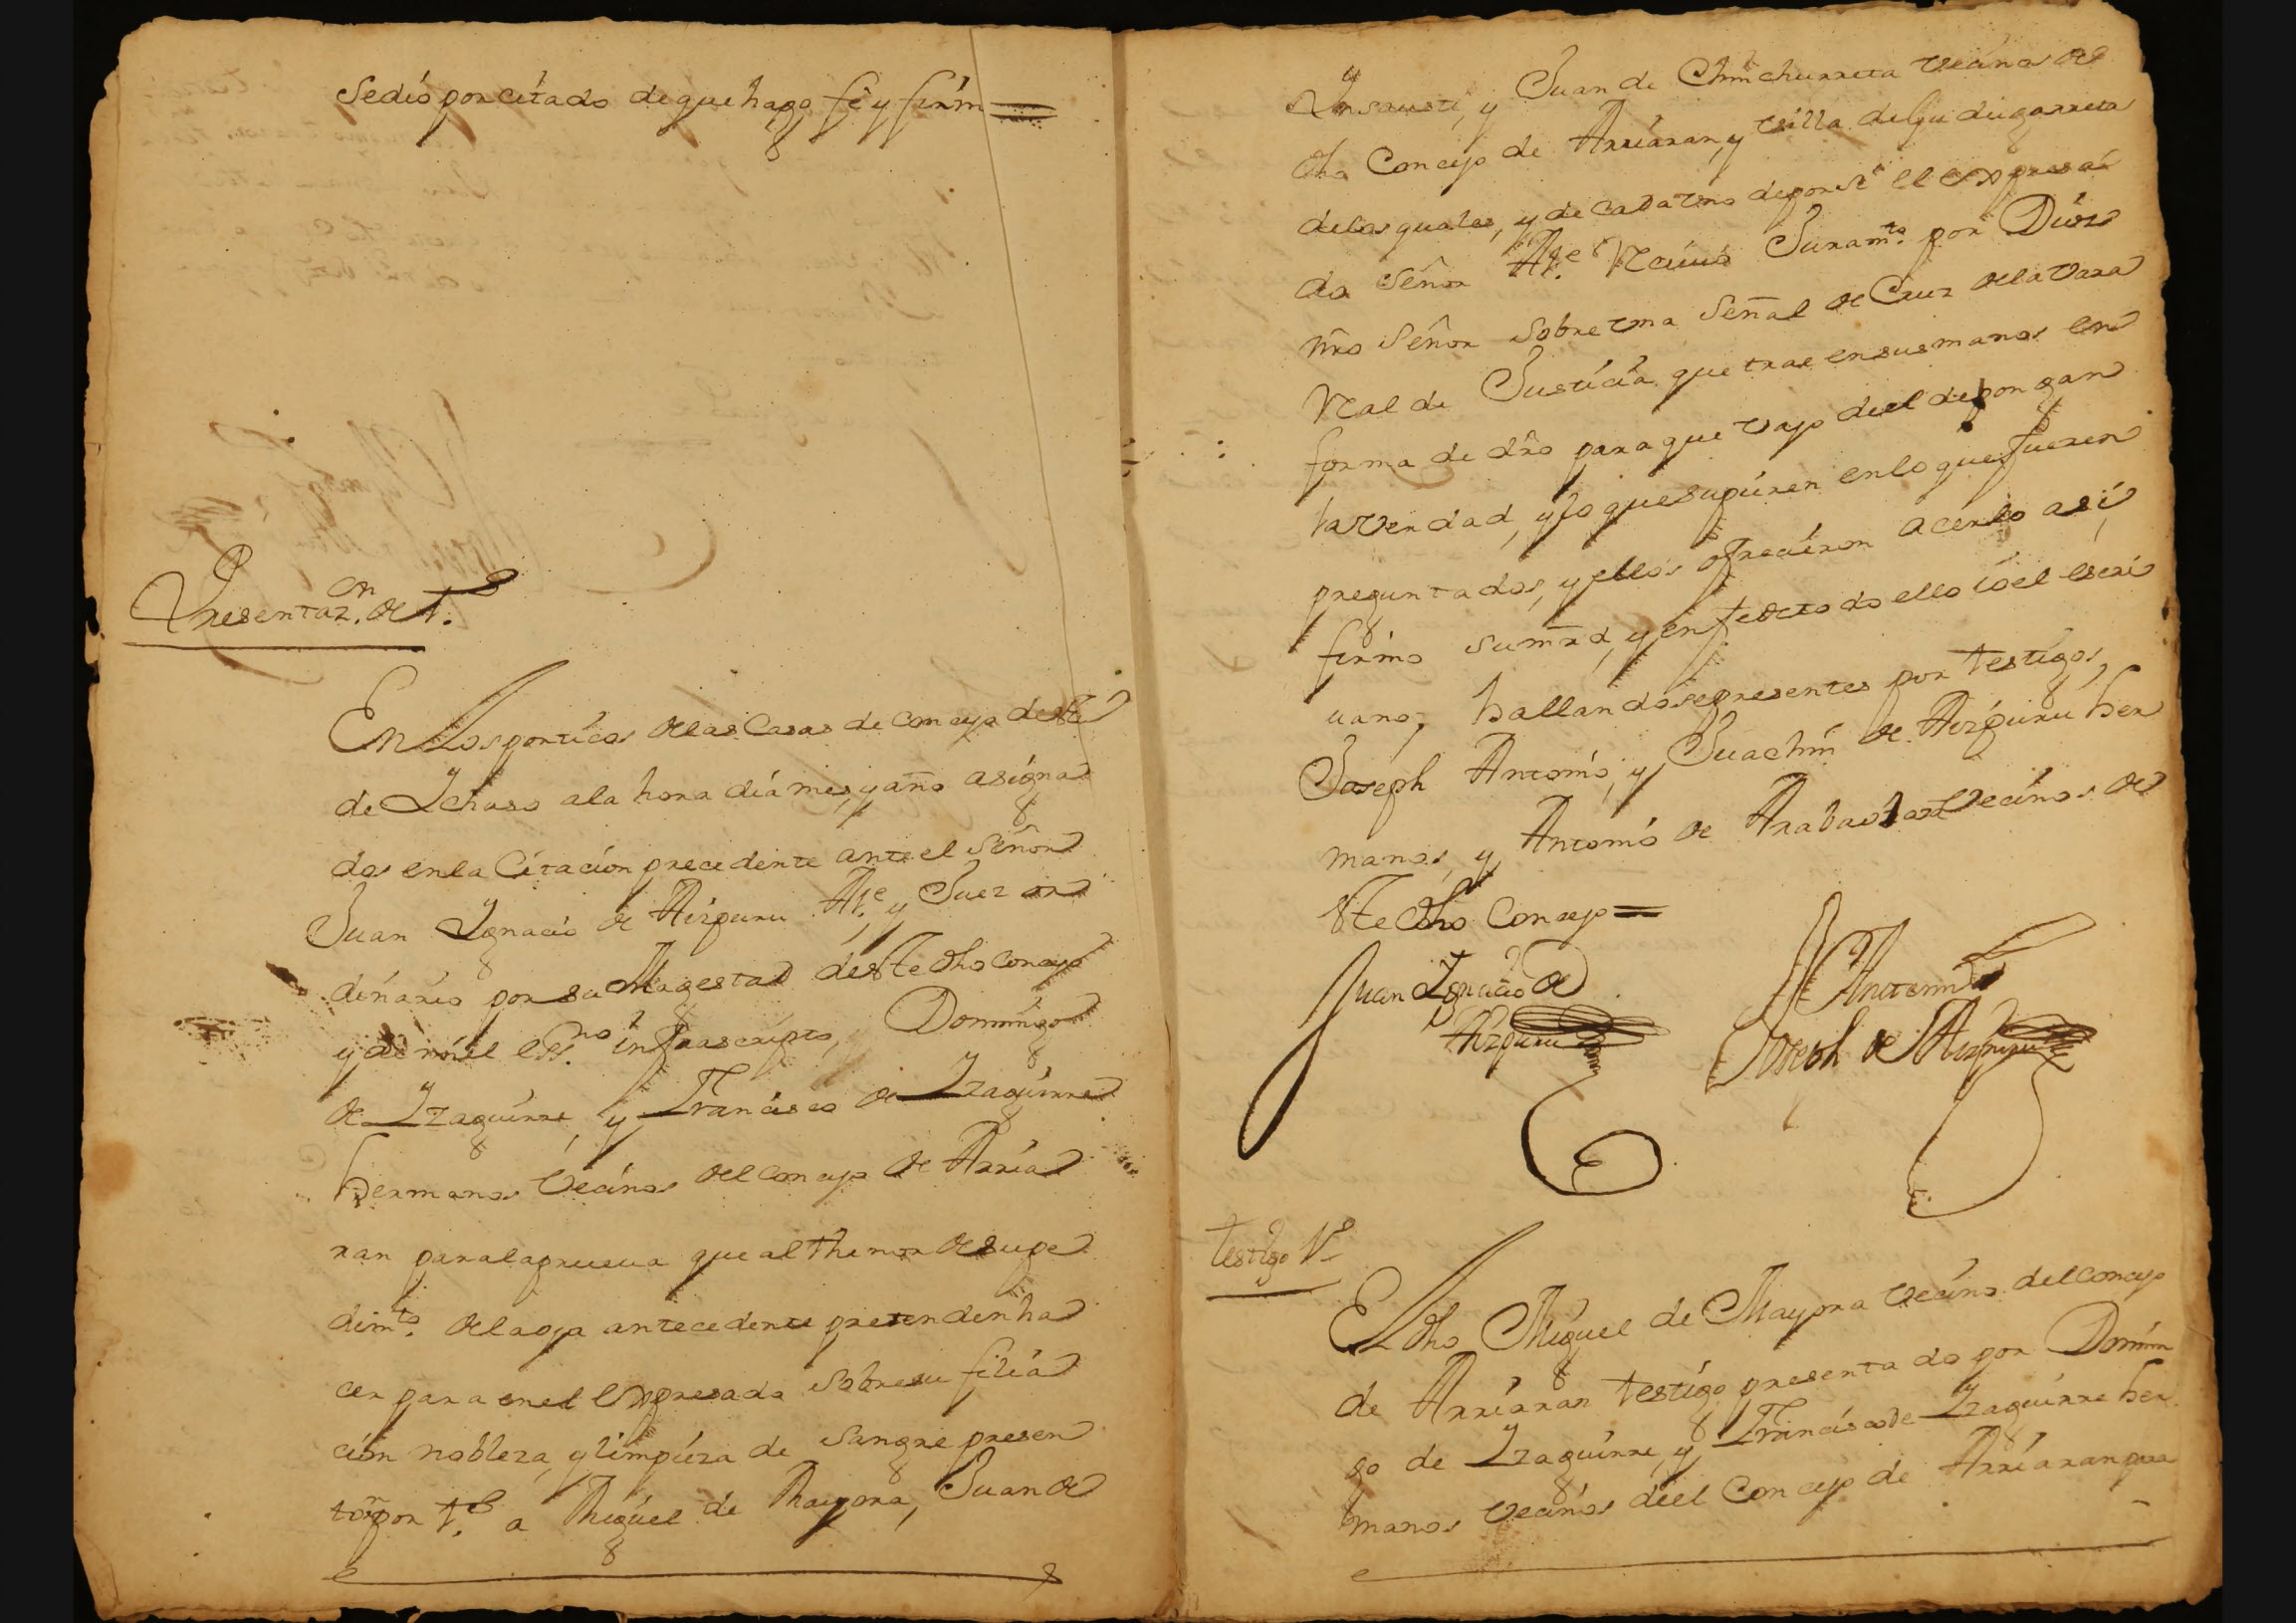 Se dio por citado de que hago fe y firm=
Presentaz.on de t.s
En Los porticos de las Casas de Concejo deste
de Ychaso a la hora dia mes, y año asigna
dos en la Citacion precedente ante el Señor
Juan Ygnacio de Aizpuru Al.e y Juez or
dinario por su Magestad deste dho Concejo
y de mi el ess.no infraascripto, Domingo
de Yzaguirre, y Francisco de Yzaguirre
hermanos Vecinos del Concejo de Arria
ran para la prueua que al thenor de supe
dim.to de la oja antecedente pretenden ha
cer para en el expresada sobre su filia
cion nobleza, y limpieza de Sangre presen
tor por t.s a Miguel de Mayora, Juan de
Ynsausti, y Juan de Chinchurreta vecinos de
dho Concejo de Arriaran, y villa de Gudugarreta
de los quales, y de cada vno de por si el expresa
do Señor Al.e reciuio Juram.to por Dios
nro Señor sobre vna Señal de Cruz de la Vara
Real de Justicia que trae en sus manos en
forma de dro para que vajo de el depongan
la verdad, y lo que supieren en lo que fueren
preguntados, y ellos ofrecieron acerlo asi
firmo sumrd, y en fe de todo ello io el escri
uano, hallandose presentes por testigos,
Joseph Antonio, y Juachin de Aizpuru her
manos, y Antonio de Arabaolaza Vecinos de
ste dho Concejo =
Juan Ygnacio de
Aizpuru
Antemi
Joseph de Aizpuru
testigo 1.o
El dho Miguel de Mayora vecino del Concejo
de Arriaran testigo presentado por Domin
go de Yzaguirre, y Francisco de Yzaguirre her
manos vecinos de el Concejo de Arriaran para